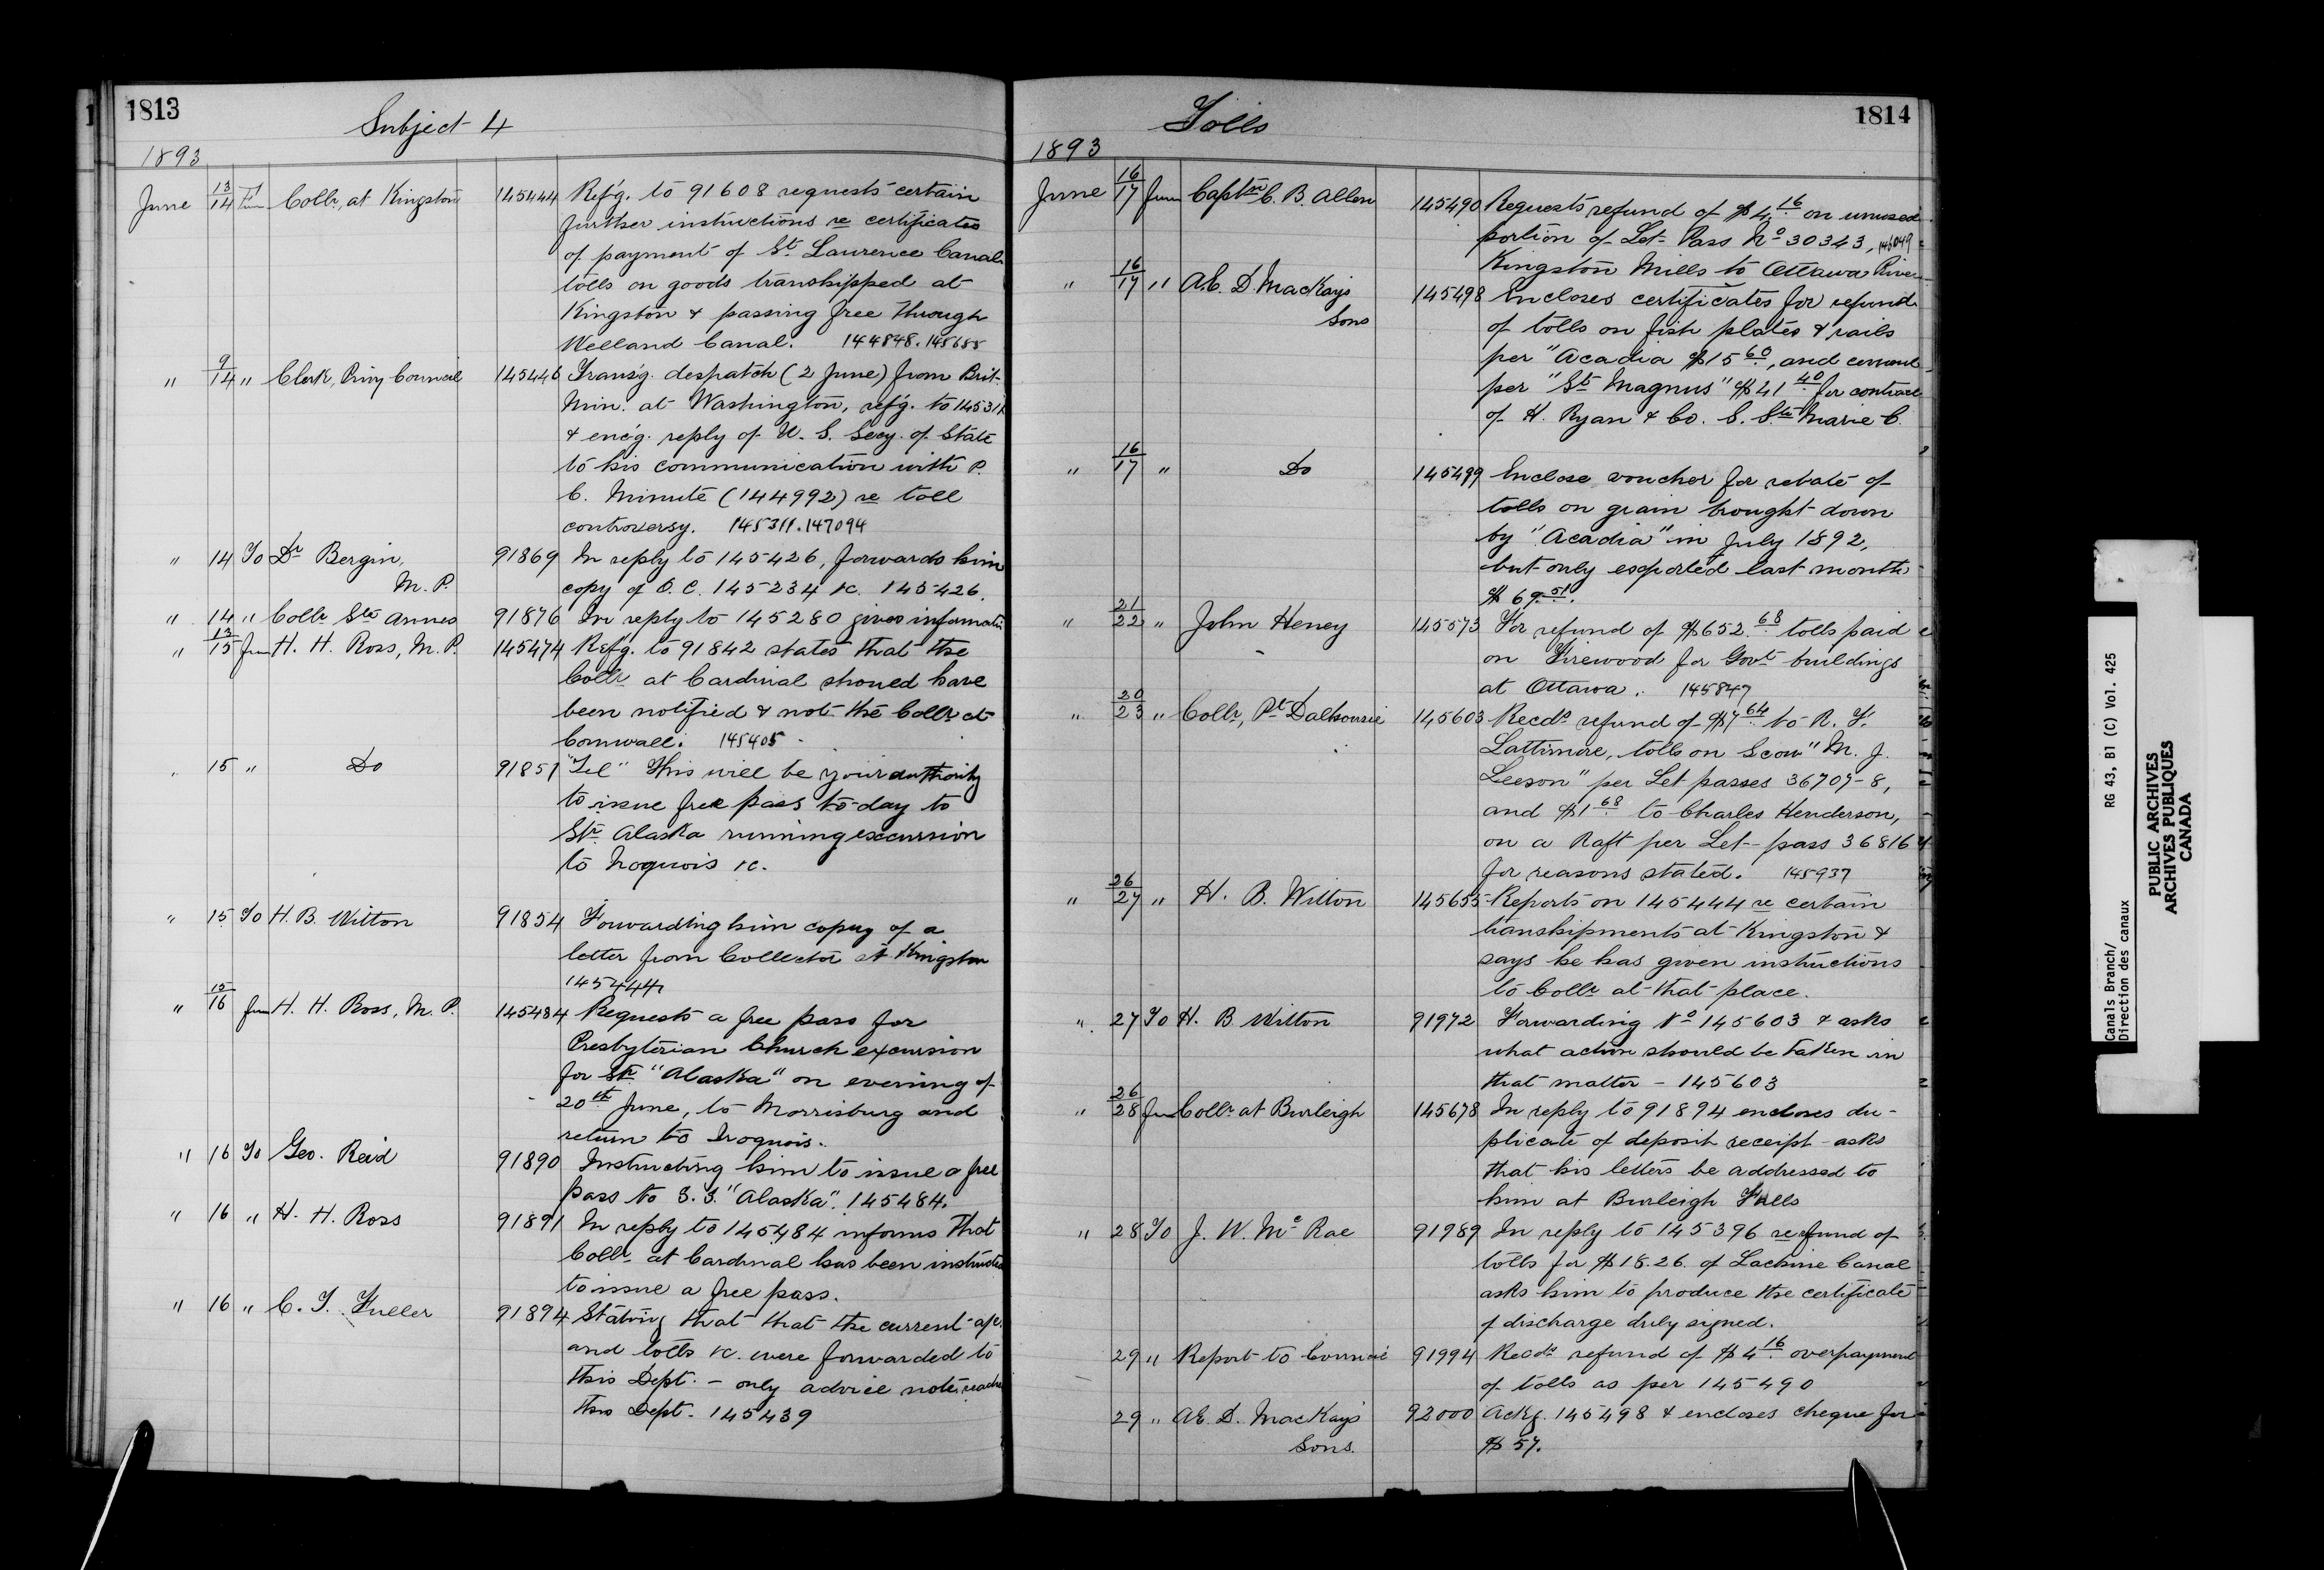 1813
Subject 4
1893
June 13/14 Fm Collr, at Kingston 145444 Ref'g. to 91608 requests certain
further instructions re certificates
of payment of St. Laurence Canal
tolls on goods transhipped at
Kingston & passing free through
Welland Canal. 144848. 145655
" 9/14 " Clerk, Privy Council 145446 Trans'g. despatch (2 June) from Brit.
Min. at Washington, ref'g. to 145311
& enc'g. reply of U. S. Secy. of State
to his communication with P.
C. Minute (144992) re toll
controversy. 145311. 147094
" 14 To Dr Bergin, 91869 In reply to 145426, forwards him
M. P. copy of O. C. 145234 &c. 145426.
" 14 " Collr Ste Annes 91876 In reply to 145280 gives informatn
" 13/15 from H. H. Ross, M. P. 145474 Ref'g. to 91842 states that the
Collr at Cardinal should have
been notified & not the Collr at
Cornwall. 145405
" 15 " Do 91851 "Tel" This will be your authority
to issue free pass to-day to
Str Alaska running excursion
to Iroquois &c.
" 15 To H. B. Witton 91854 Forwarding him copy of a
letter from Collector at Kingston
145444
" 15/16 from H. H. Ross, M. P. 145484 Requests a free pass for
Presbyterian Church excursion
for Str "Alaska" on evening of
20th June, to Morrisburg and
return to Iroquois.
" 16 To Geo. Reid 91890 Instructing him to issue a free
pass to S.S. "Alaska". 145484.
" 16 " H. H. Ross 91891 In reply to 145484 informs that
Collr at Cardinal has been instructed
to issue a free pass.
" 16 " C. T. Fuller 91894 Stating that that the current a/c.
and tolls &c. were forwarded to
this Dept. - only advice note reached
this Dept. 145439
Tolls
1814
1893
June 16/17 from Captn C. B. Allen 145490 Requests refund of $4.16 on unused
portion of Let Pass No 30343, 146049
Kingston Mills to Ottawa River
" 16/17 " AE. D. MacKay's 145498 Encloses certificates for refund
Sons of tolls on fish plates & rails
per "Acadia $15 60, and cement
per "St Magnus" $41 40 for contract
of H. Ryan & Co. S. Ste Marie C.
" 16/17 " Do 145499 Enclose voucher for rebate of
tolls on grain brought down
by "Acadia" in July 1892,
but only exported last month
$69.51.
" 21/22 " John Heney 145573 For refund of $652.68 tolls paid
on Firewood for Govt buildings
at Ottawa. 145847
" 20/23 " Collr, Pt Dalhousie 145603 Recds refund of $7 64 to R. F.
Lattimore, tolls on Scow "M. J.
Leeson" per Let passes 36707-8,
and $1 68 to Charles Henderson,
on a Raft per Let-pass 36816
for reasons stated. 145937
" 26/27 " H. B. Witton 145655 Reports on 145444 re certain
transhipments at Kingston &
says he has given instructions
to Collr at that place.
" 27 To H. B Witton 91972 Forwarding No 145603 & asks
what action should be taken in
that matter - 145603
" 26/28 from Collr at Burleigh 145678 In reply to 91894 encloses du-
plicate of deposit receipt - asks
that his letters be addressed to
him at Burleigh Falls
" 28 To J. W. McRae 91989 In reply to 145396 re refund of
tolls for $18.26. of Lachine Canal
asks him to produce the certificate
of discharge duly signed.
29 " Report to Council 91994 Recds refund of $4 16 overpayment
of tolls as per 145490
29 " AE. D. MacKay's 92000 Ackg. 145498 & encloses cheque for
Sons. $57.
Canals Branch/ RG 43, B1 (C) Vol. 425
Direction des canaux
PUBLIC ARCHIVES
ARCHIVES PUBLIQUES
CANADA